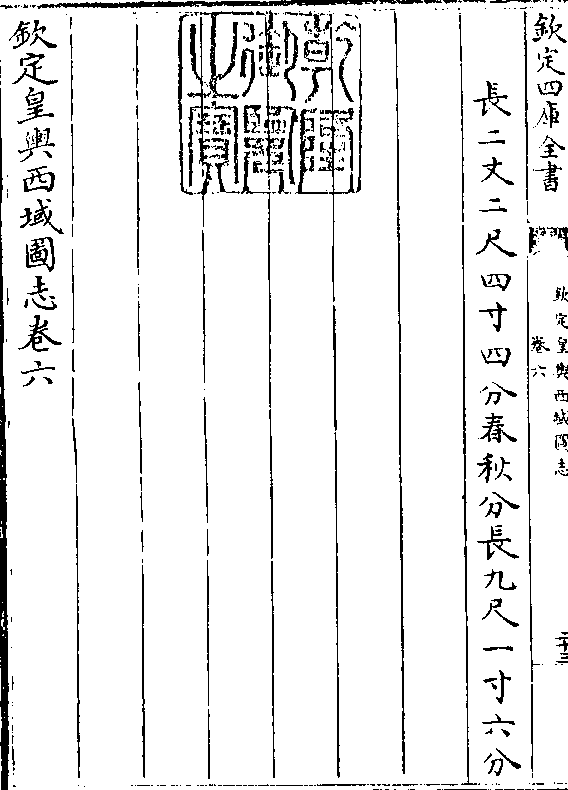 欽定四庫全書
欽定皇輿西域圖志
卷六
二十三
長二丈二尺四寸四分春秋分長九尺一寸六分
乾隆御覽之寶
欽定皇輿西域圖志卷六